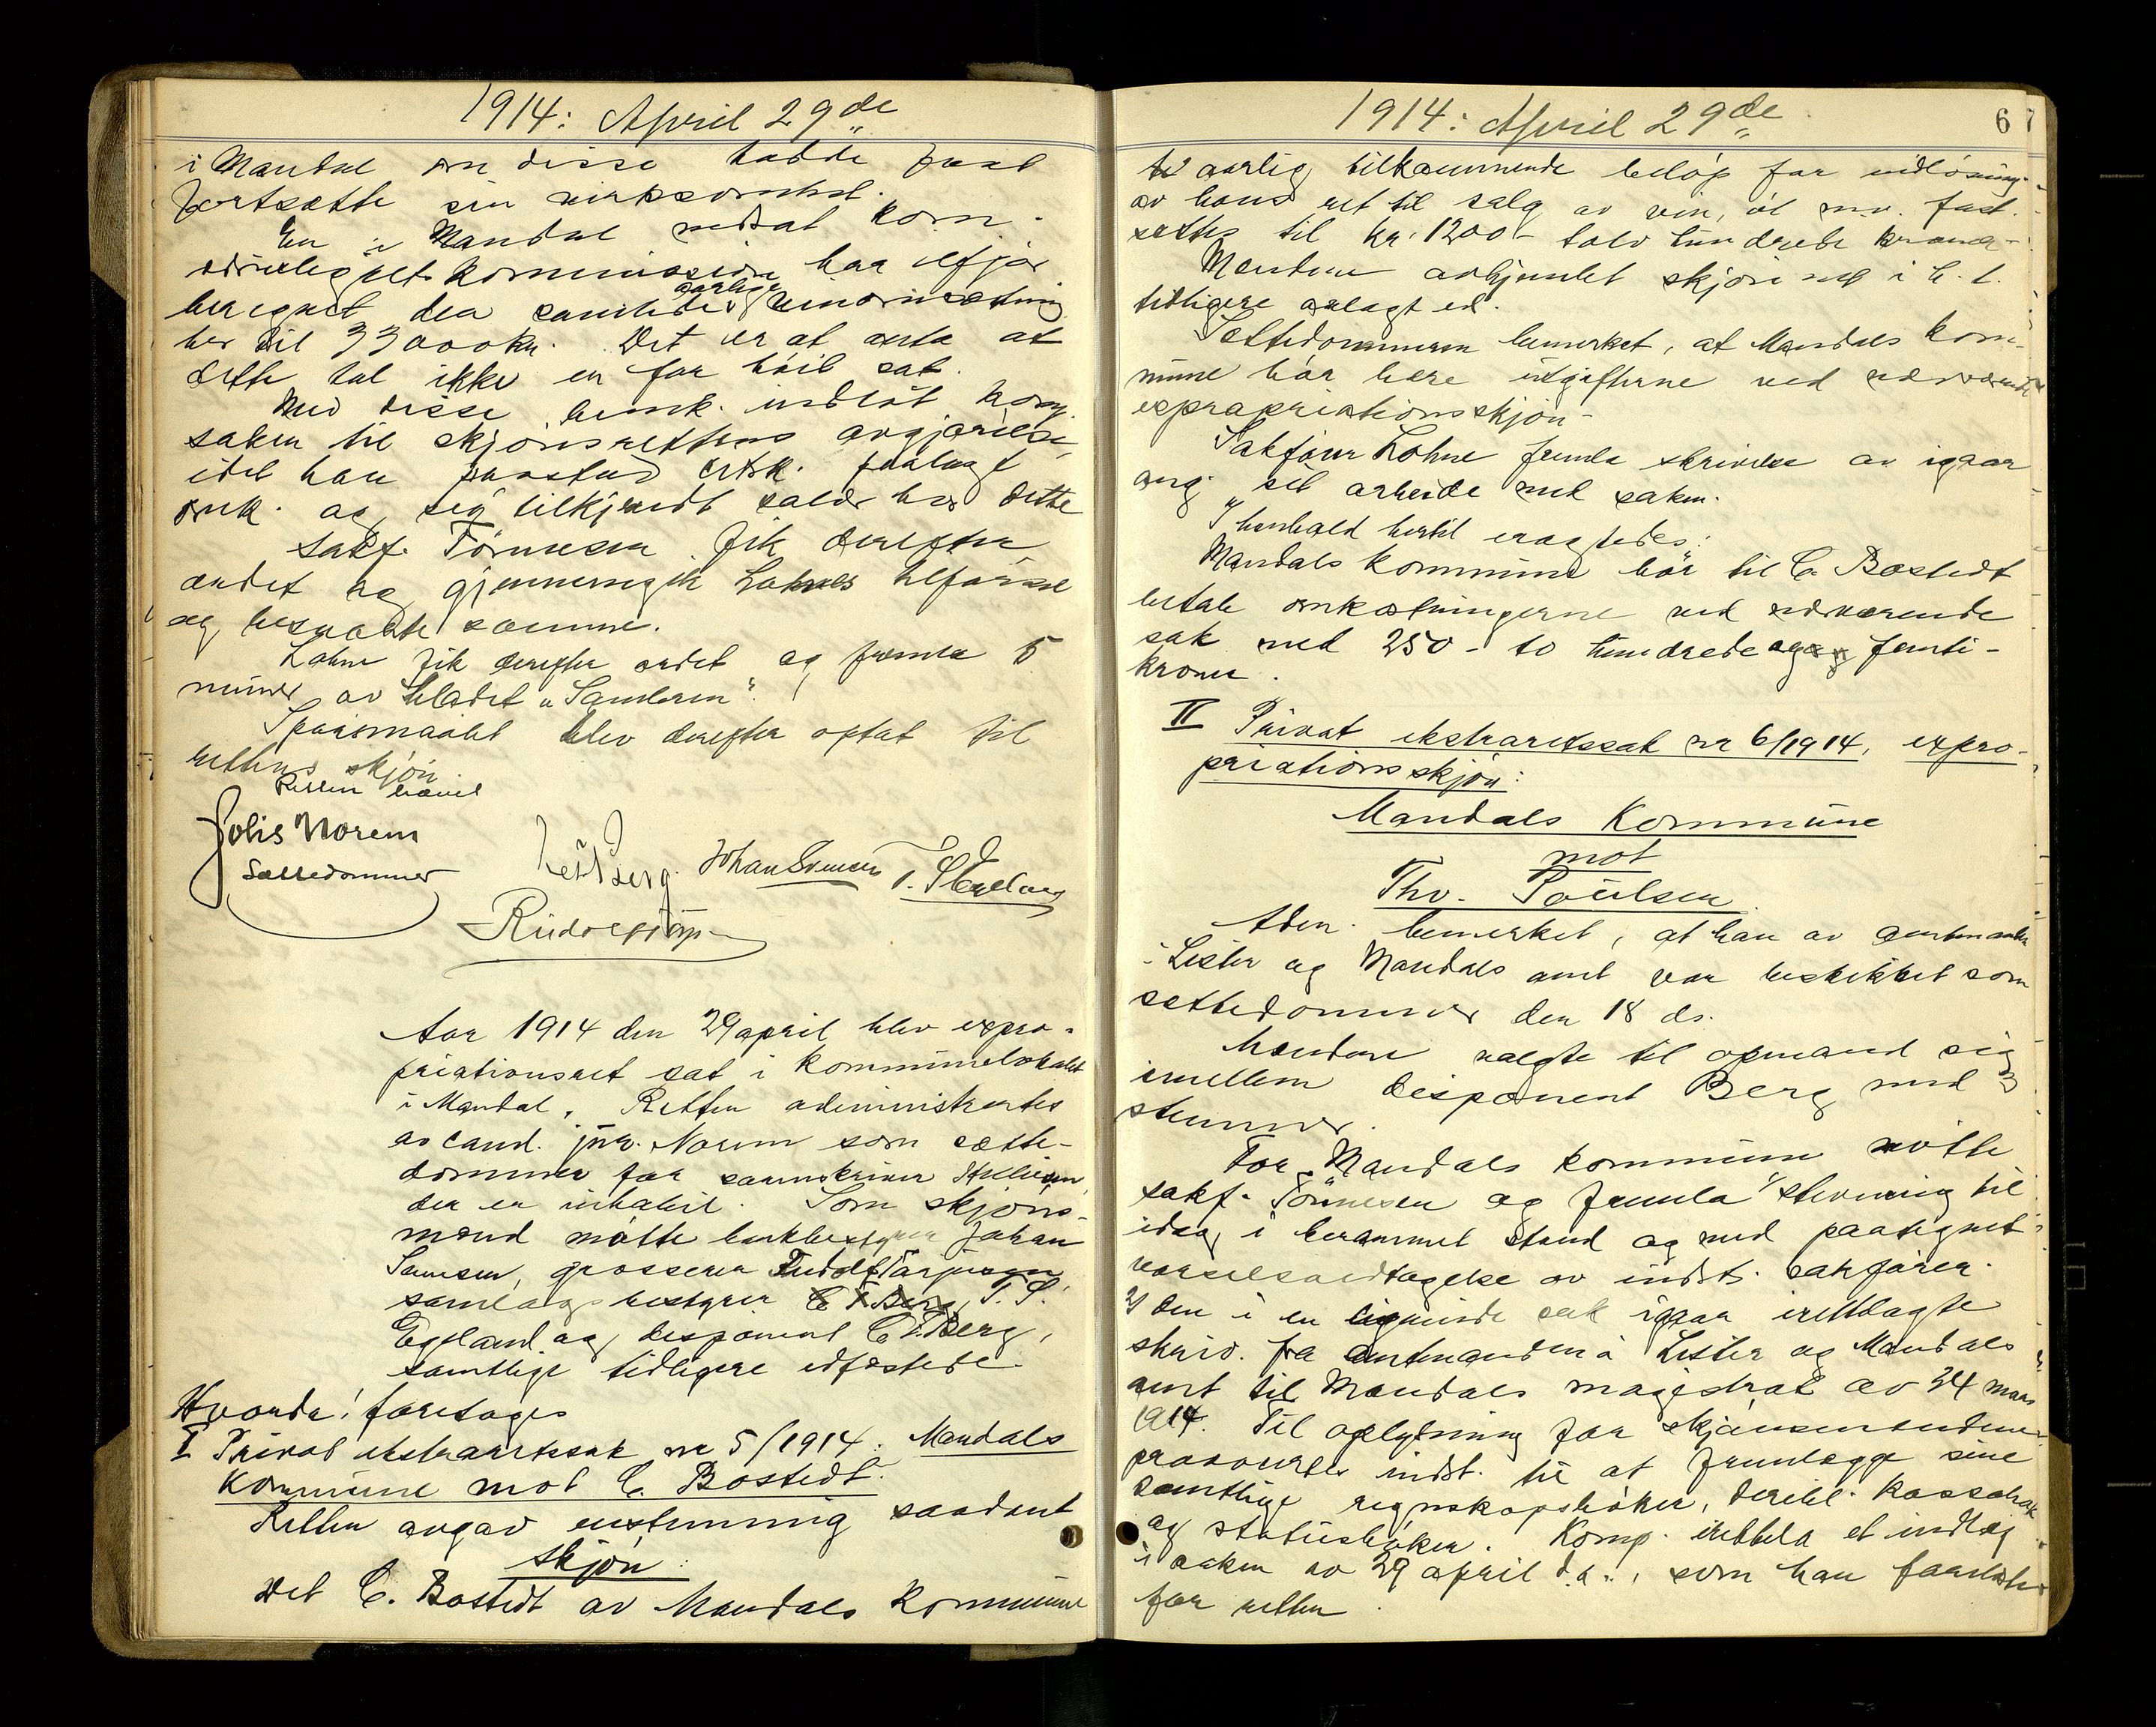 1914: April 29de
i Mandal om disse hadde faat
fortsætte sin virksomhet.
En i Mandal nedsat kom-
munal kommission har ifjor
beregnet den samlede aarlige vinomsætning
her til 33000 kr. Det er at anta at
dette tal ikke er for høit sat.
Med disse bemk. indlot komp.
saken til skjønsrettens avgjørelse,
idet han paastod citsk. paalagt
omk. og sig tilkjendt salær hos dette
Sakf. Tønnesen fik derefter
ordet og gjennemgik Lohnes utførsel
og besvarte samme.
Lohne fik derefter ordet og fremla 5
numre av bladet "Samleren".
Spørsmaalet blev derefter optat til
rettens skjøn.
Retten hævet
Jolis Norem
Sættedommer
Berg. Johan T.
Aar 1914 den 29 april blev expro-
priationsret sat i kommunelokalet
i Mandal. Retten administrertes
av cand. jur. Norem som sætte-
dommer for sorenskriver
der er inhabil. Som skjøns-
mænd møtte bankbestyrer Johan
grosserer
samlagsbestyrer C. F. Berg, T. S.
Egeland og disponent C. F. Berg,
samtlige tidligere edfæstede.
Hvorda: foretages
I Privat ekstraretssak nr 5/1914: Mandals
Kommune mot C. Bostedt.
Retten avgav enstemmig saadant
skjøn:
Det C. Bostedt av Mandals Kommune
1914: April 29de
67
aarlig tilkommende beløp for indløsning
av hans ret til salg av vin, øl mv. fast-
sættes til kr. 1200 - tolv hundrede kroner -
Mændene avhjemlet skjønnet i h. t.
tidligere avlagt ed.
Sættedommeren bemerket, at Mandals kom-
mune bør bære utgifterne ved nærværende
expropriationsskjøn -
Sakfører Lohne fremla skrivelse av igaar
ang. sit arbeide med saken.
I henhold hertil eragtedes:
Mandals kommune bør til C. Bostedt
betale omkostningerne ved nærværende
sak med 250 - to hundrede og femti -
kroner.
II Privat ekstraretssak nr 6/1914, expro-
priationsskjøn:
Mandals Kommune
mot
Thv. Poulsen
Adm. bemerket, at han av amtmanden
i Lister og Mandals amt var beskikket som
sættedommer den 18 ds.
Mændene valgte til opmand sig
imellem disponent Berg med 3
stemmer.
For Mandals kommune møtte
sakf. Tønnesen og fremla 1/ stevning til
idag i berammet stand og med paategnet
varselsvedtagelse av indst. sakfører.
2/ den i en lignende sak igaar irettelagte
skriv. fra amtmanden i Lister og Mandals
amt til Mandals magistrat av 24 mars
1914. Til oplysning for skjønsmændene
provocertes indst. til at fremlægge sine
samtlige regnskapsbøker, deribl.
og statusbøker. Komp. irettela et indlæg
i saken av 29 april d.a., som han
for retten.